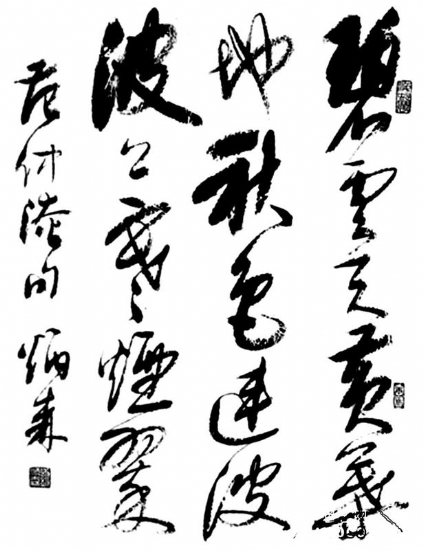 碧雲天黃葉
地秋色連波
波上寒煙翠
范仲淹句 炳森